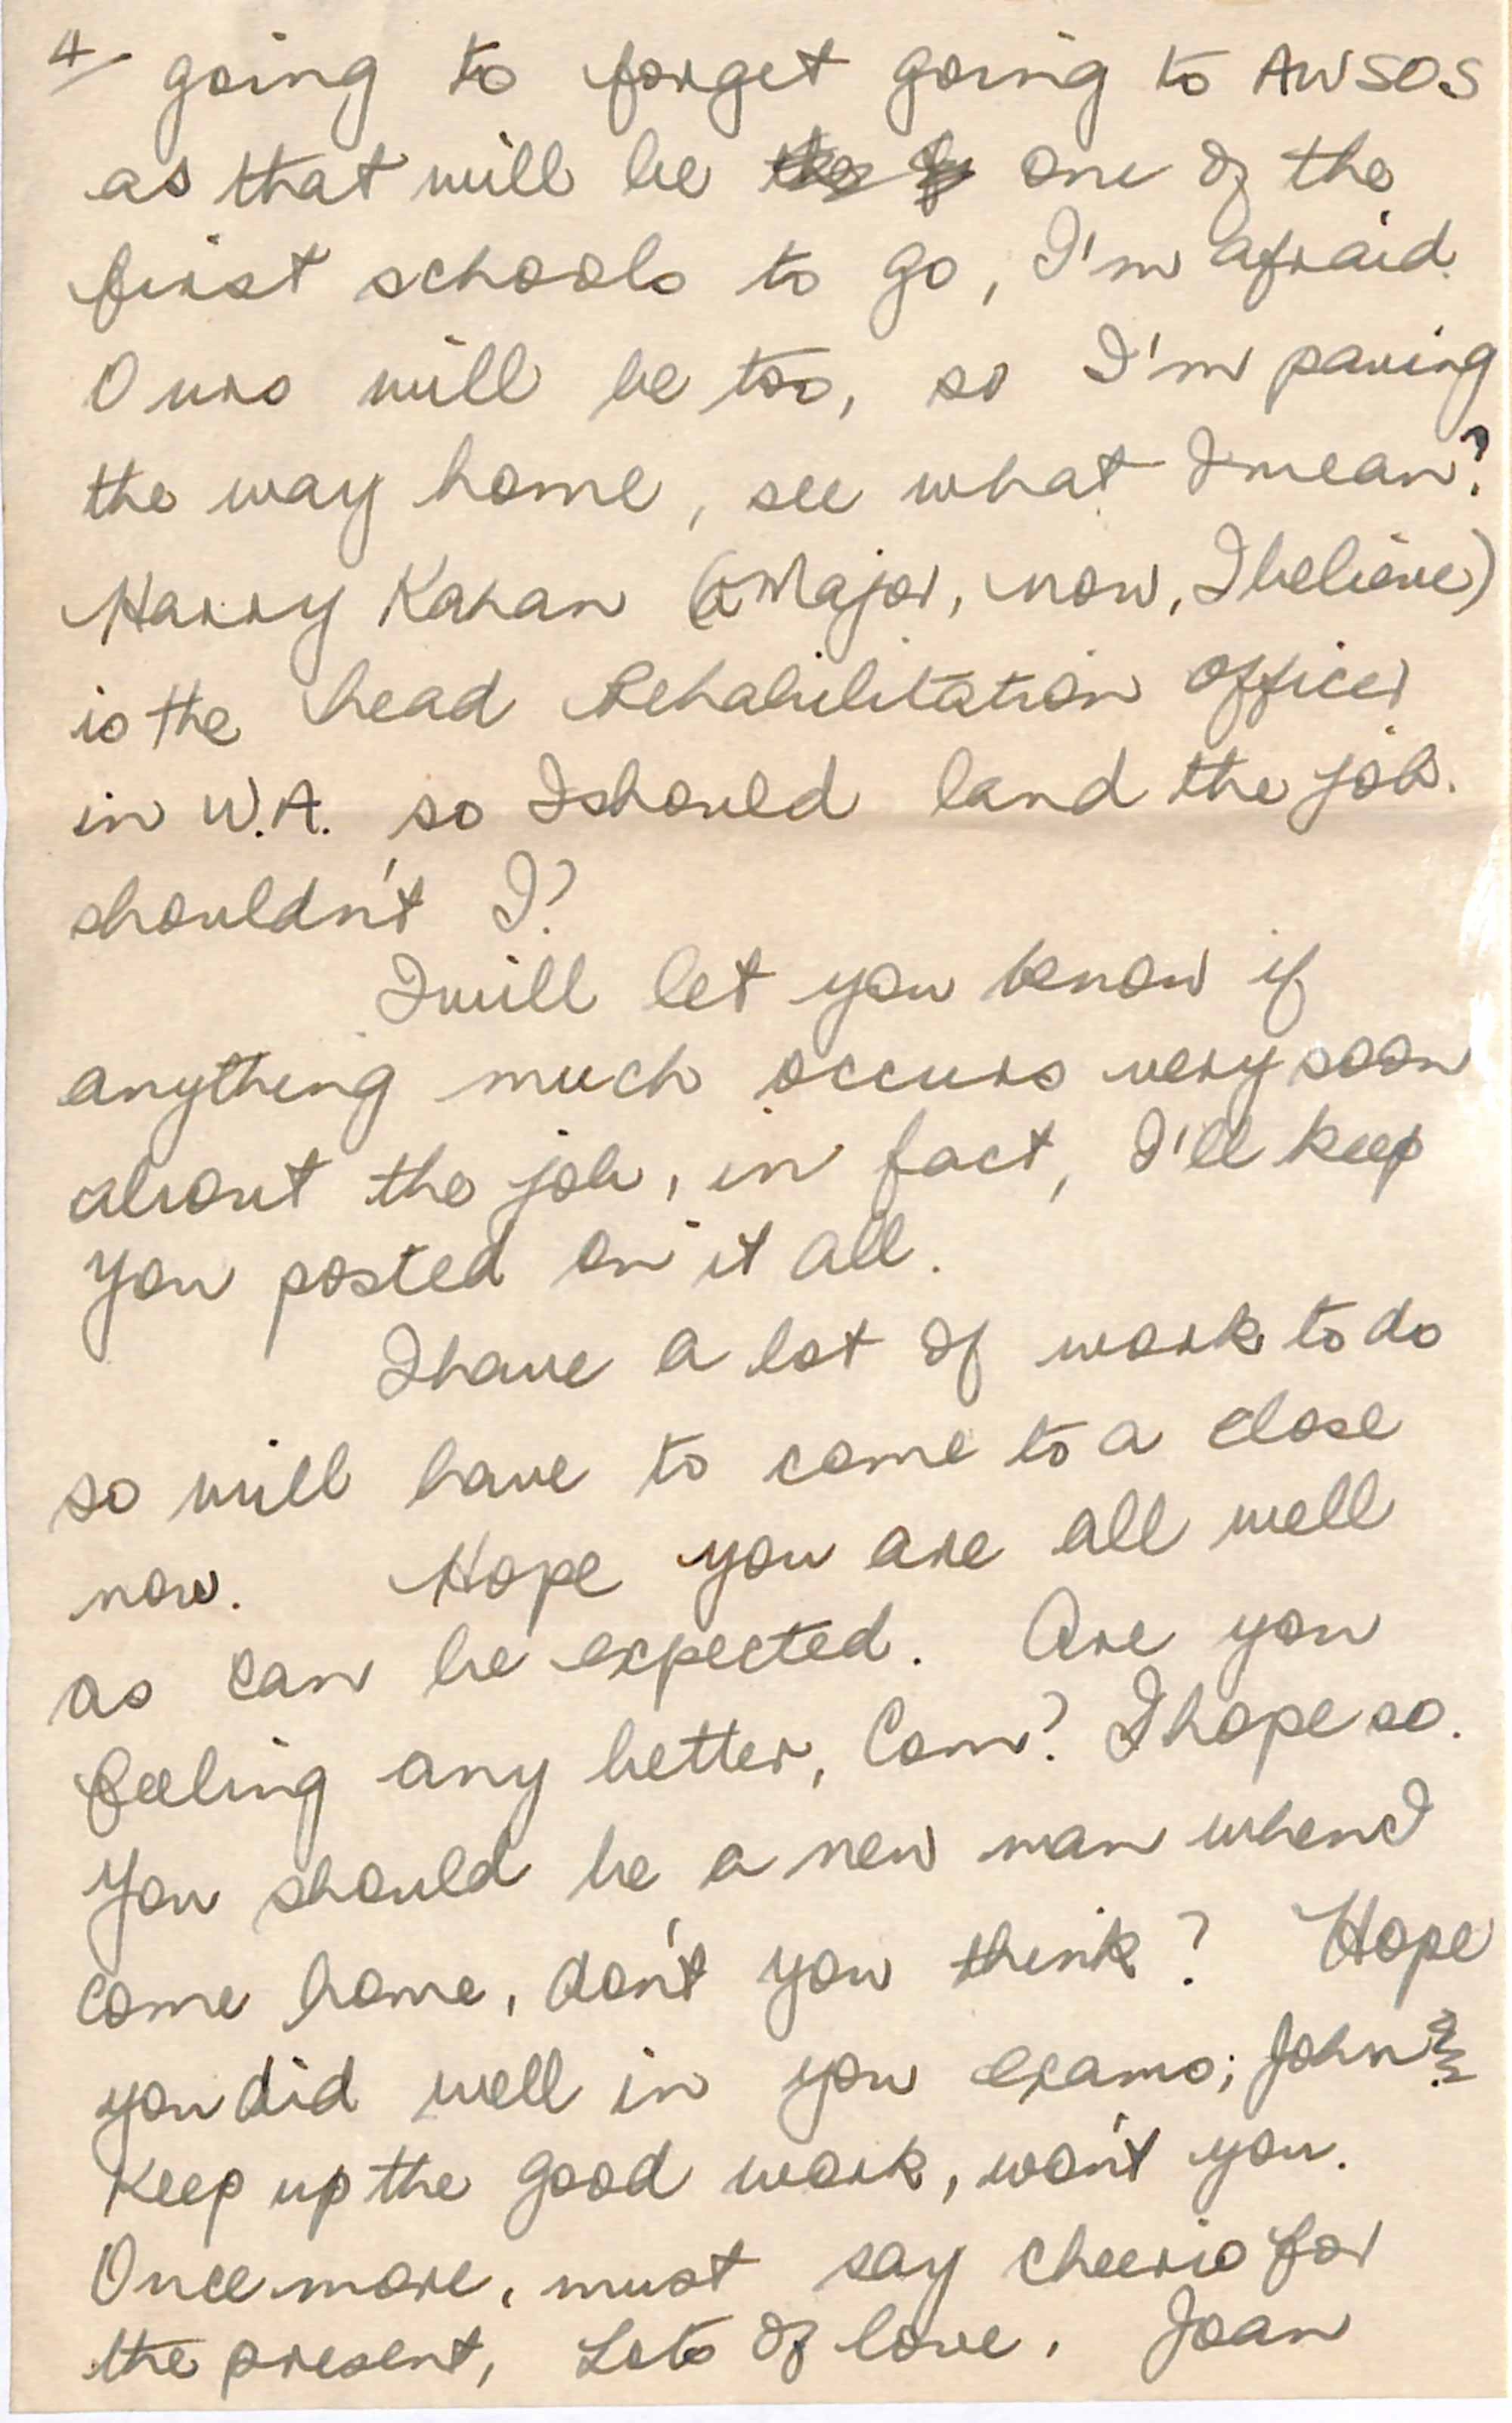 4/ going to forget going to AWSOS
as that will be one of the
first schools to go, I'm afraid.
Ours will be too, so I'm paving
the way home, see what I mean?
Harry Kahan (a Major, now, I believe)
is the head Rehabilitation officer
in W.A. so I should land the job.
shouldn't I?
I will let you know if
anything much occurs very soon
about the job, in fact, I'll keep
you posted on it all.
I have a lot of work to do
so will have to come to a close
now. Hope you are all well
as can be expected. Are you
feeling any better, Com? I hope so.
You should be a new man when I
come home, don't you think? Hope
you did well in you exams; John
Keep up the good work, won't you.
Once more, must say cheerio for
the present, Lots of love. Joan